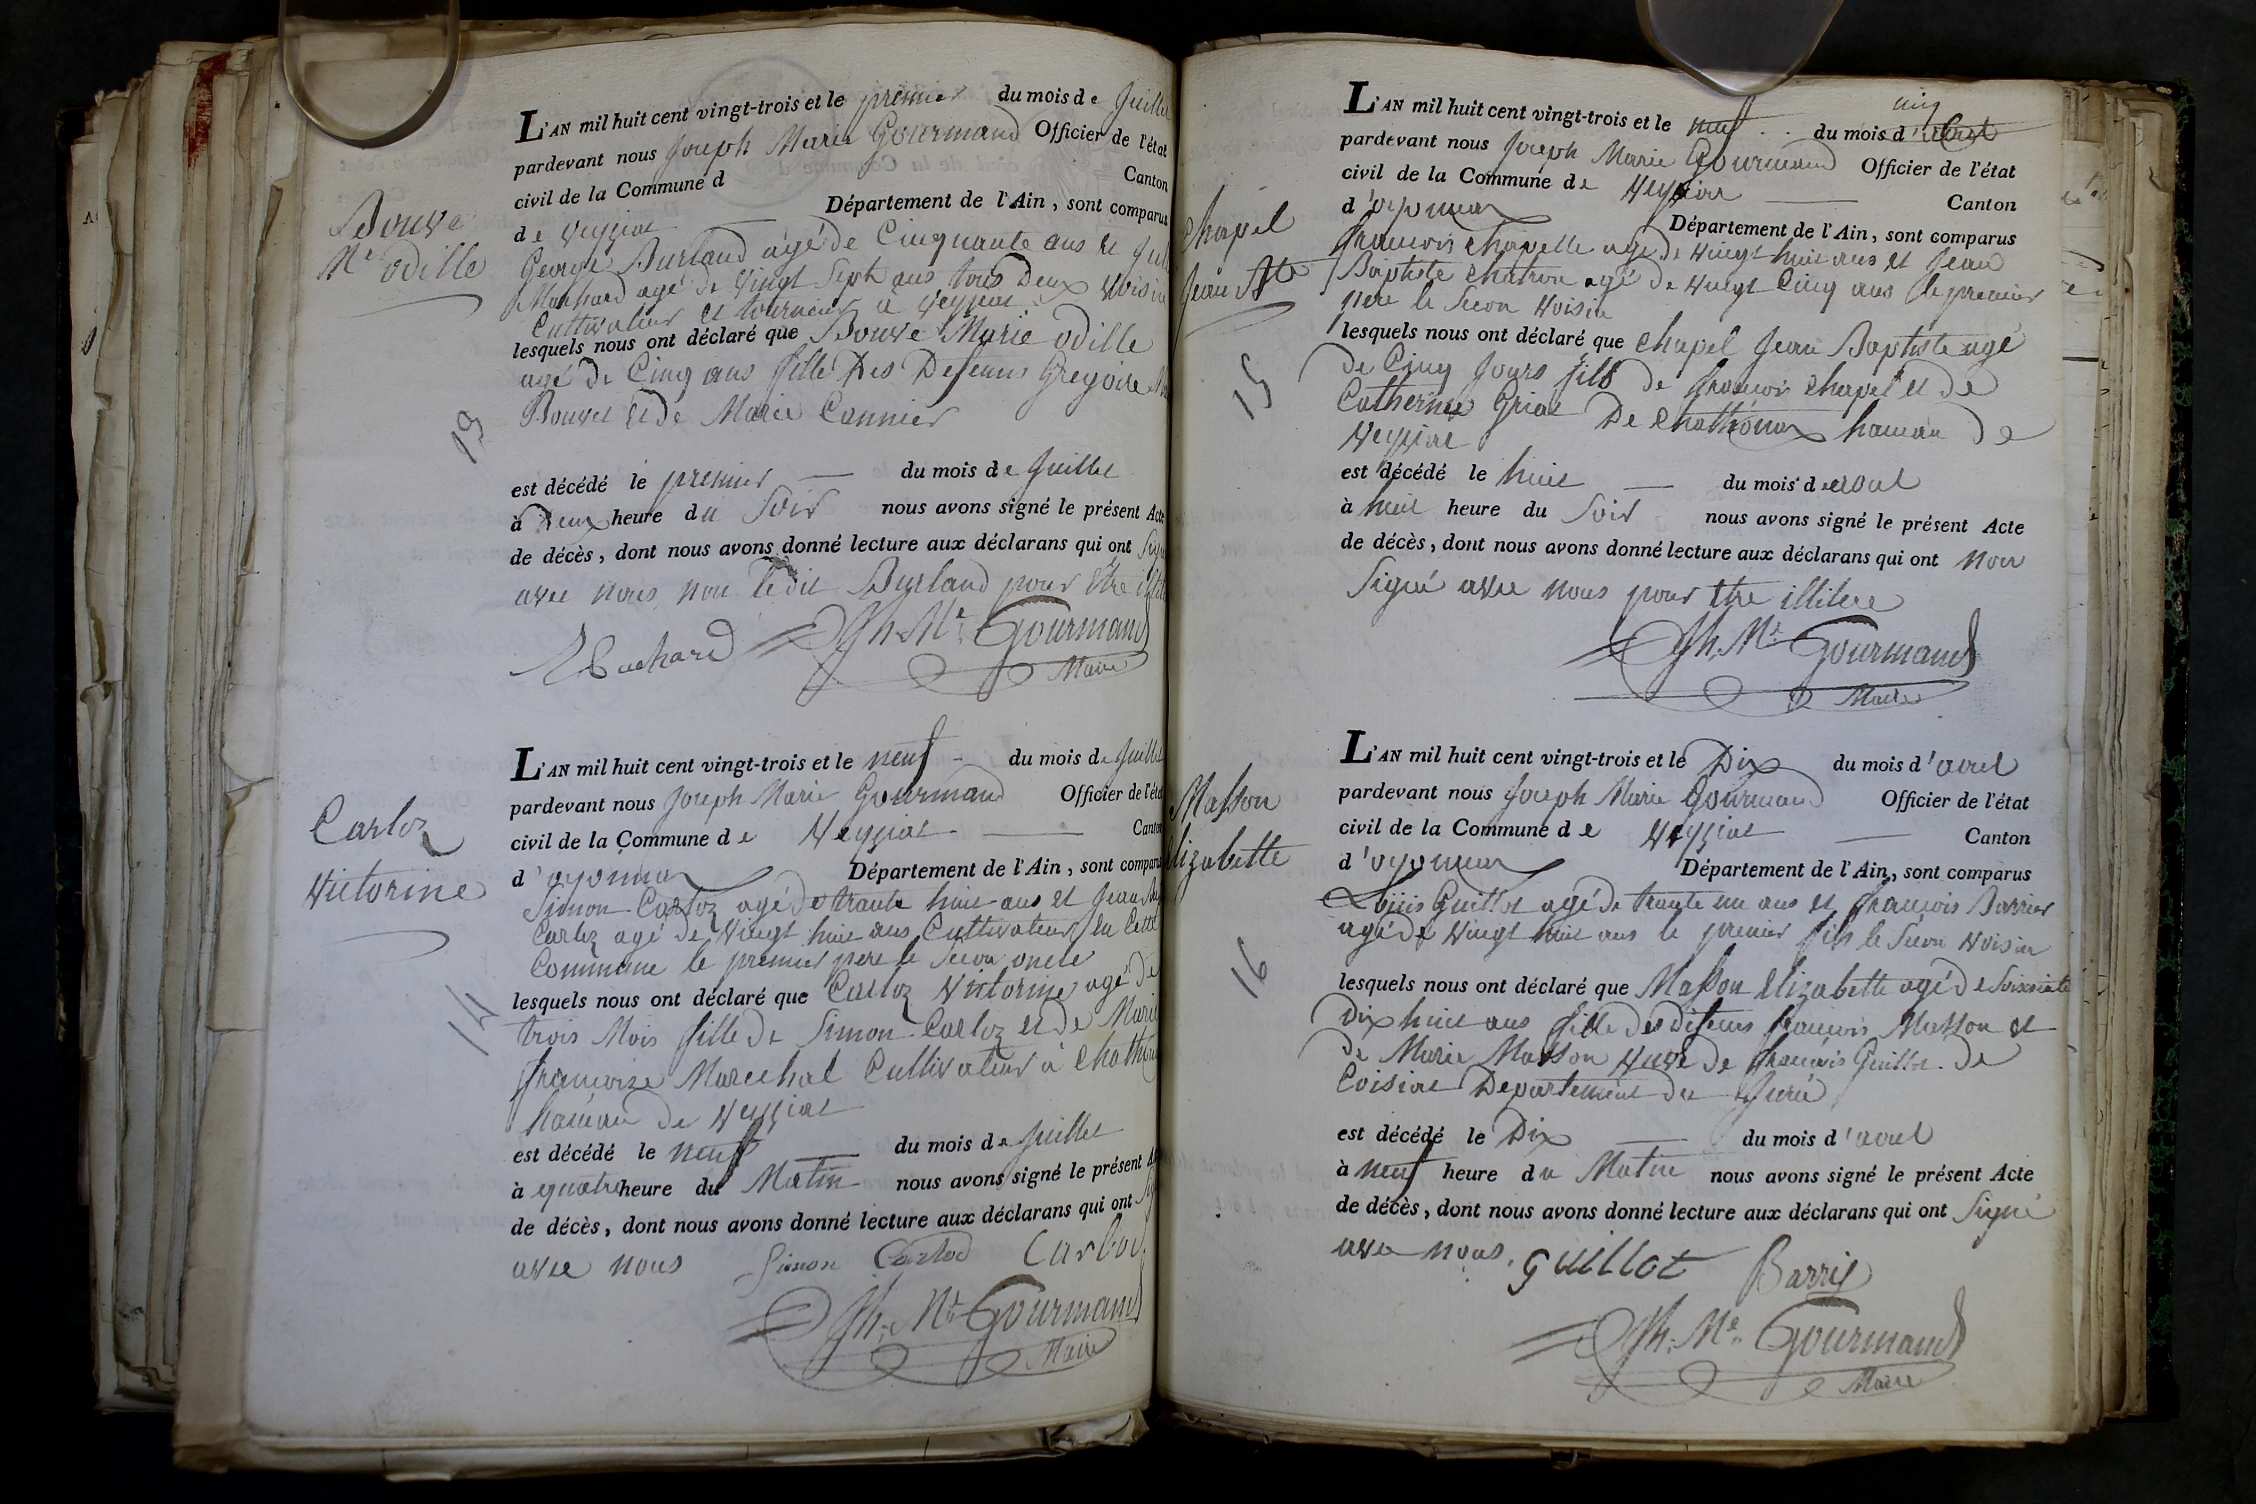 Bouve
Me odille
13
L'AN mil huit cent vingt-trois et le premier du mois de Juillet
pardevant nous Joseph Marie Gourmand Officier de l'état
civil de la Commune d Canton
de Veyziat Département de l'Ain, sont comparus
George Burland agé de Cinquante ans et
agé de Vingt Sept ans tous Deux Voisin
Cultivateur et tourneur à Veyziat
lesquels nous ont déclaré que Bouve Marie odille
agé de Cinq ans fille Des Defeunts Gregoire
Bouvet et de Marie Cannier
est décédé le premier du mois de Juillet
à Deux heure du Soir nous avons signé le présent Acte
de décès, dont nous avons donné lecture aux déclarans qui ont
avec nous non ledit Burland pour être
Jh. Me Gourmand
Maire
Carloz
Victorine
14
L'AN mil huit cent vingt-trois et le neuf du mois de Juillet
pardevant nous Joseph Marie Gourmand Officier de l'état
civil de la Commune de Veyziat Canton
d'oyonnax Département de l'Ain, sont comparus
Simon Carloz agé de trante huit ans et Jean
Carloz agé de Vingt huit ans Cultivateur en Cette
Commune le premier pere le Secon oncle
lesquels nous ont déclaré que Carloz Victorine agé de
trois Mois fille de Simon Carloz et de Marie
françoize Marechal Cultivateur à
hameau de Veyziat
est décédé le neuf du mois de Juillet
à quatre heure du Matin nous avons signé le présent
de décès, dont nous avons donné lecture aux déclarans qui ont
avec nous Simon Carloz
Jh. Me Gourmand
Maire
Chapel
Jean Bte
15
L'AN mil huit cent vingt-trois et le neuf du mois d'
pardevant nous Joseph Marie Gourmand Officier de l'état
civil de la Commune de Veyziat Canton
d'oyonnax Département de l'Ain, sont comparus
francois Chapelle agé de Vingt huit ans et Jean
Baptiste Chatron agé de Vingt Cinq ans le premier
pere le Secon Voisin
lesquels nous ont déclaré que Chapel Jean Baptiste agé
de Cinq Jours fils de francois Chapel et de
Catherine De Chathonax hameau de
Veyziat
est décédé le huit du mois de aout
à huit heure du Soir nous avons signé le présent Acte
de décès, dont nous avons donné lecture aux déclarans qui ont non
Signé avec nous pour Etre illitere
Jh. Me Gourmand
Maire
Masson
Elizabette
16
L'AN mil huit cent vingt-trois et le Dix du mois d'
pardevant nous Joseph Marie Gourmand Officier de l'état
civil de la Commune de Veyziat Canton
d'oyonnax Département de l'Ain, sont comparus
Louis Guillot agé de trante un ans et francois Barrier
agé de Vingt huit ans le premier fils le Secon Voisin
lesquels nous ont déclaré que Masson Elizabette agé de Soixante
Dix huit ans fille des Defeuns francois Masson et
de Marie Masson Veuve de francois Guillot de
Coisiat Departement du Jura
est décédé le Dix du mois d'
à neuf heure du Matin nous avons signé le présent Acte
de décès, dont nous avons donné lecture aux déclarans qui ont Signé
avec nous. Guillot
Jh. Me Gourmand
Maire